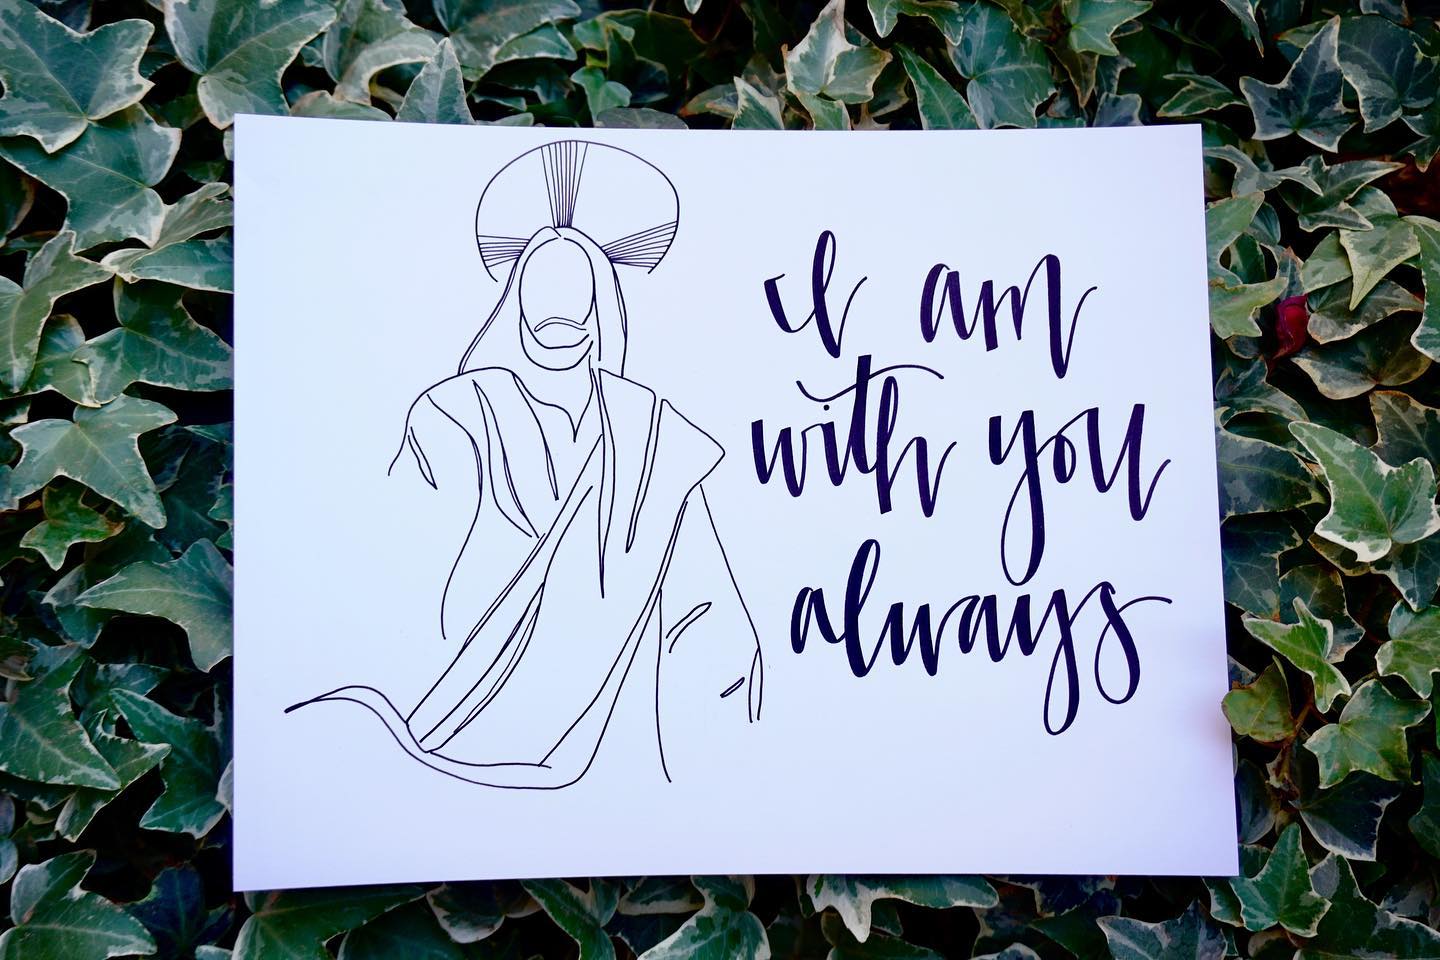 i am
with you
always